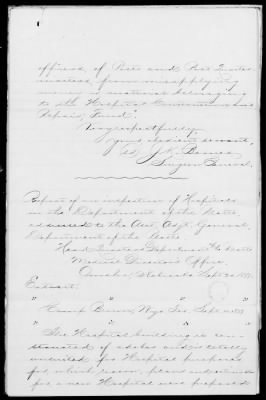 officers of Posts and Post Quarter-
masters from misapplying
money or material belonging
to the Hospital Construction and
Repairs Fund".
Very respectfully,
Your obedient servant,
J. K. Barnes
Surgeon General.
Report of an inspection of Hospitals
in the Department of the Platte,
addressed to the Asst. Adjt. General,
Department of the Platte.
Head Quarters Department of the Platte
Medical Director's Office,
Omaha, Nebraska Sept. 20, 187
Extract.
" " "
Camp Brown, Wyo. Ter. Sept. 187
" " "
The Hospital building is con-
structed of adobe and is totally
unsuited for Hospital purposes
for which reason, plans and estimates
for a new Hospital were prepared